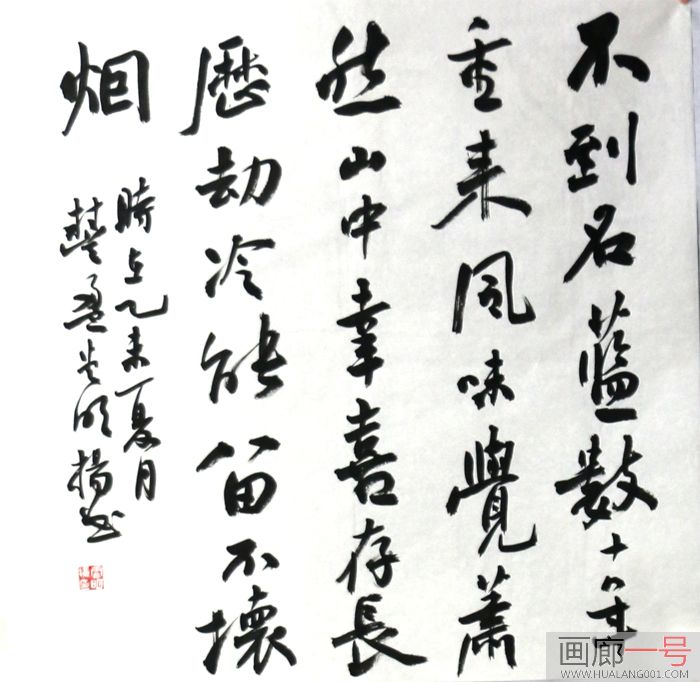 不到名蓝数十年
重来风味觉萧
然山中幸喜存长
历劫冷能留不坏
烟
時在乙未夏月
楚盈光明揚书
画廊一号
WWW.HUALANG001.COM